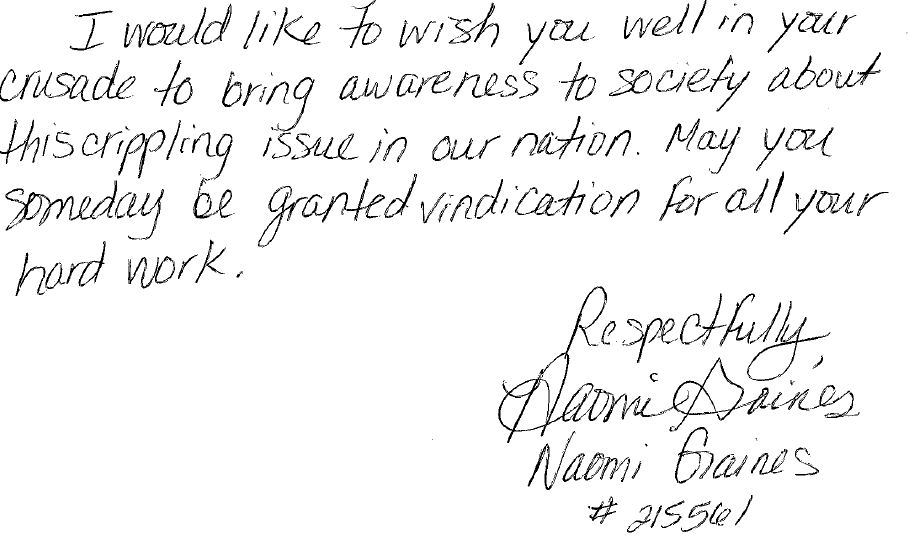 I would like to wish you well in your
crusade to bring awareness to society about
this crippling issue in our nation. May you
someday be granted vindication for all your
hard work.
Respectfully,
Naomi Gaines
Naomi Gaines
# 215561